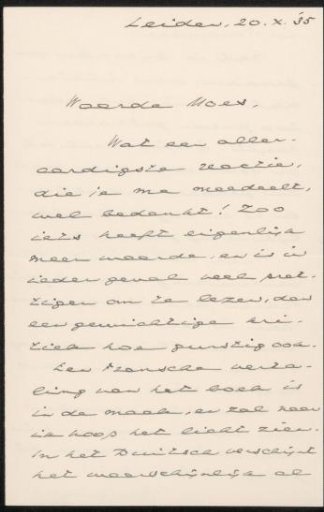 Leiden, 20.X.'35
Waarde Moes,
Wat een aller-
aardigste reactie,
die je me meedeelt,
wel bedankt! Zoo
iets heeft eigenlijk
meer waarde, en is in
ieder geval veel pret-
tiger om te lezen, dan
een gewichtige kri-
tiek hoe gunstig ook.
Een Fransche verta-
ling van het boek is
in de maak, en zal naar
ik hoop het licht zien.
In het Duitsch verschijnt
het waarschijnlijk al